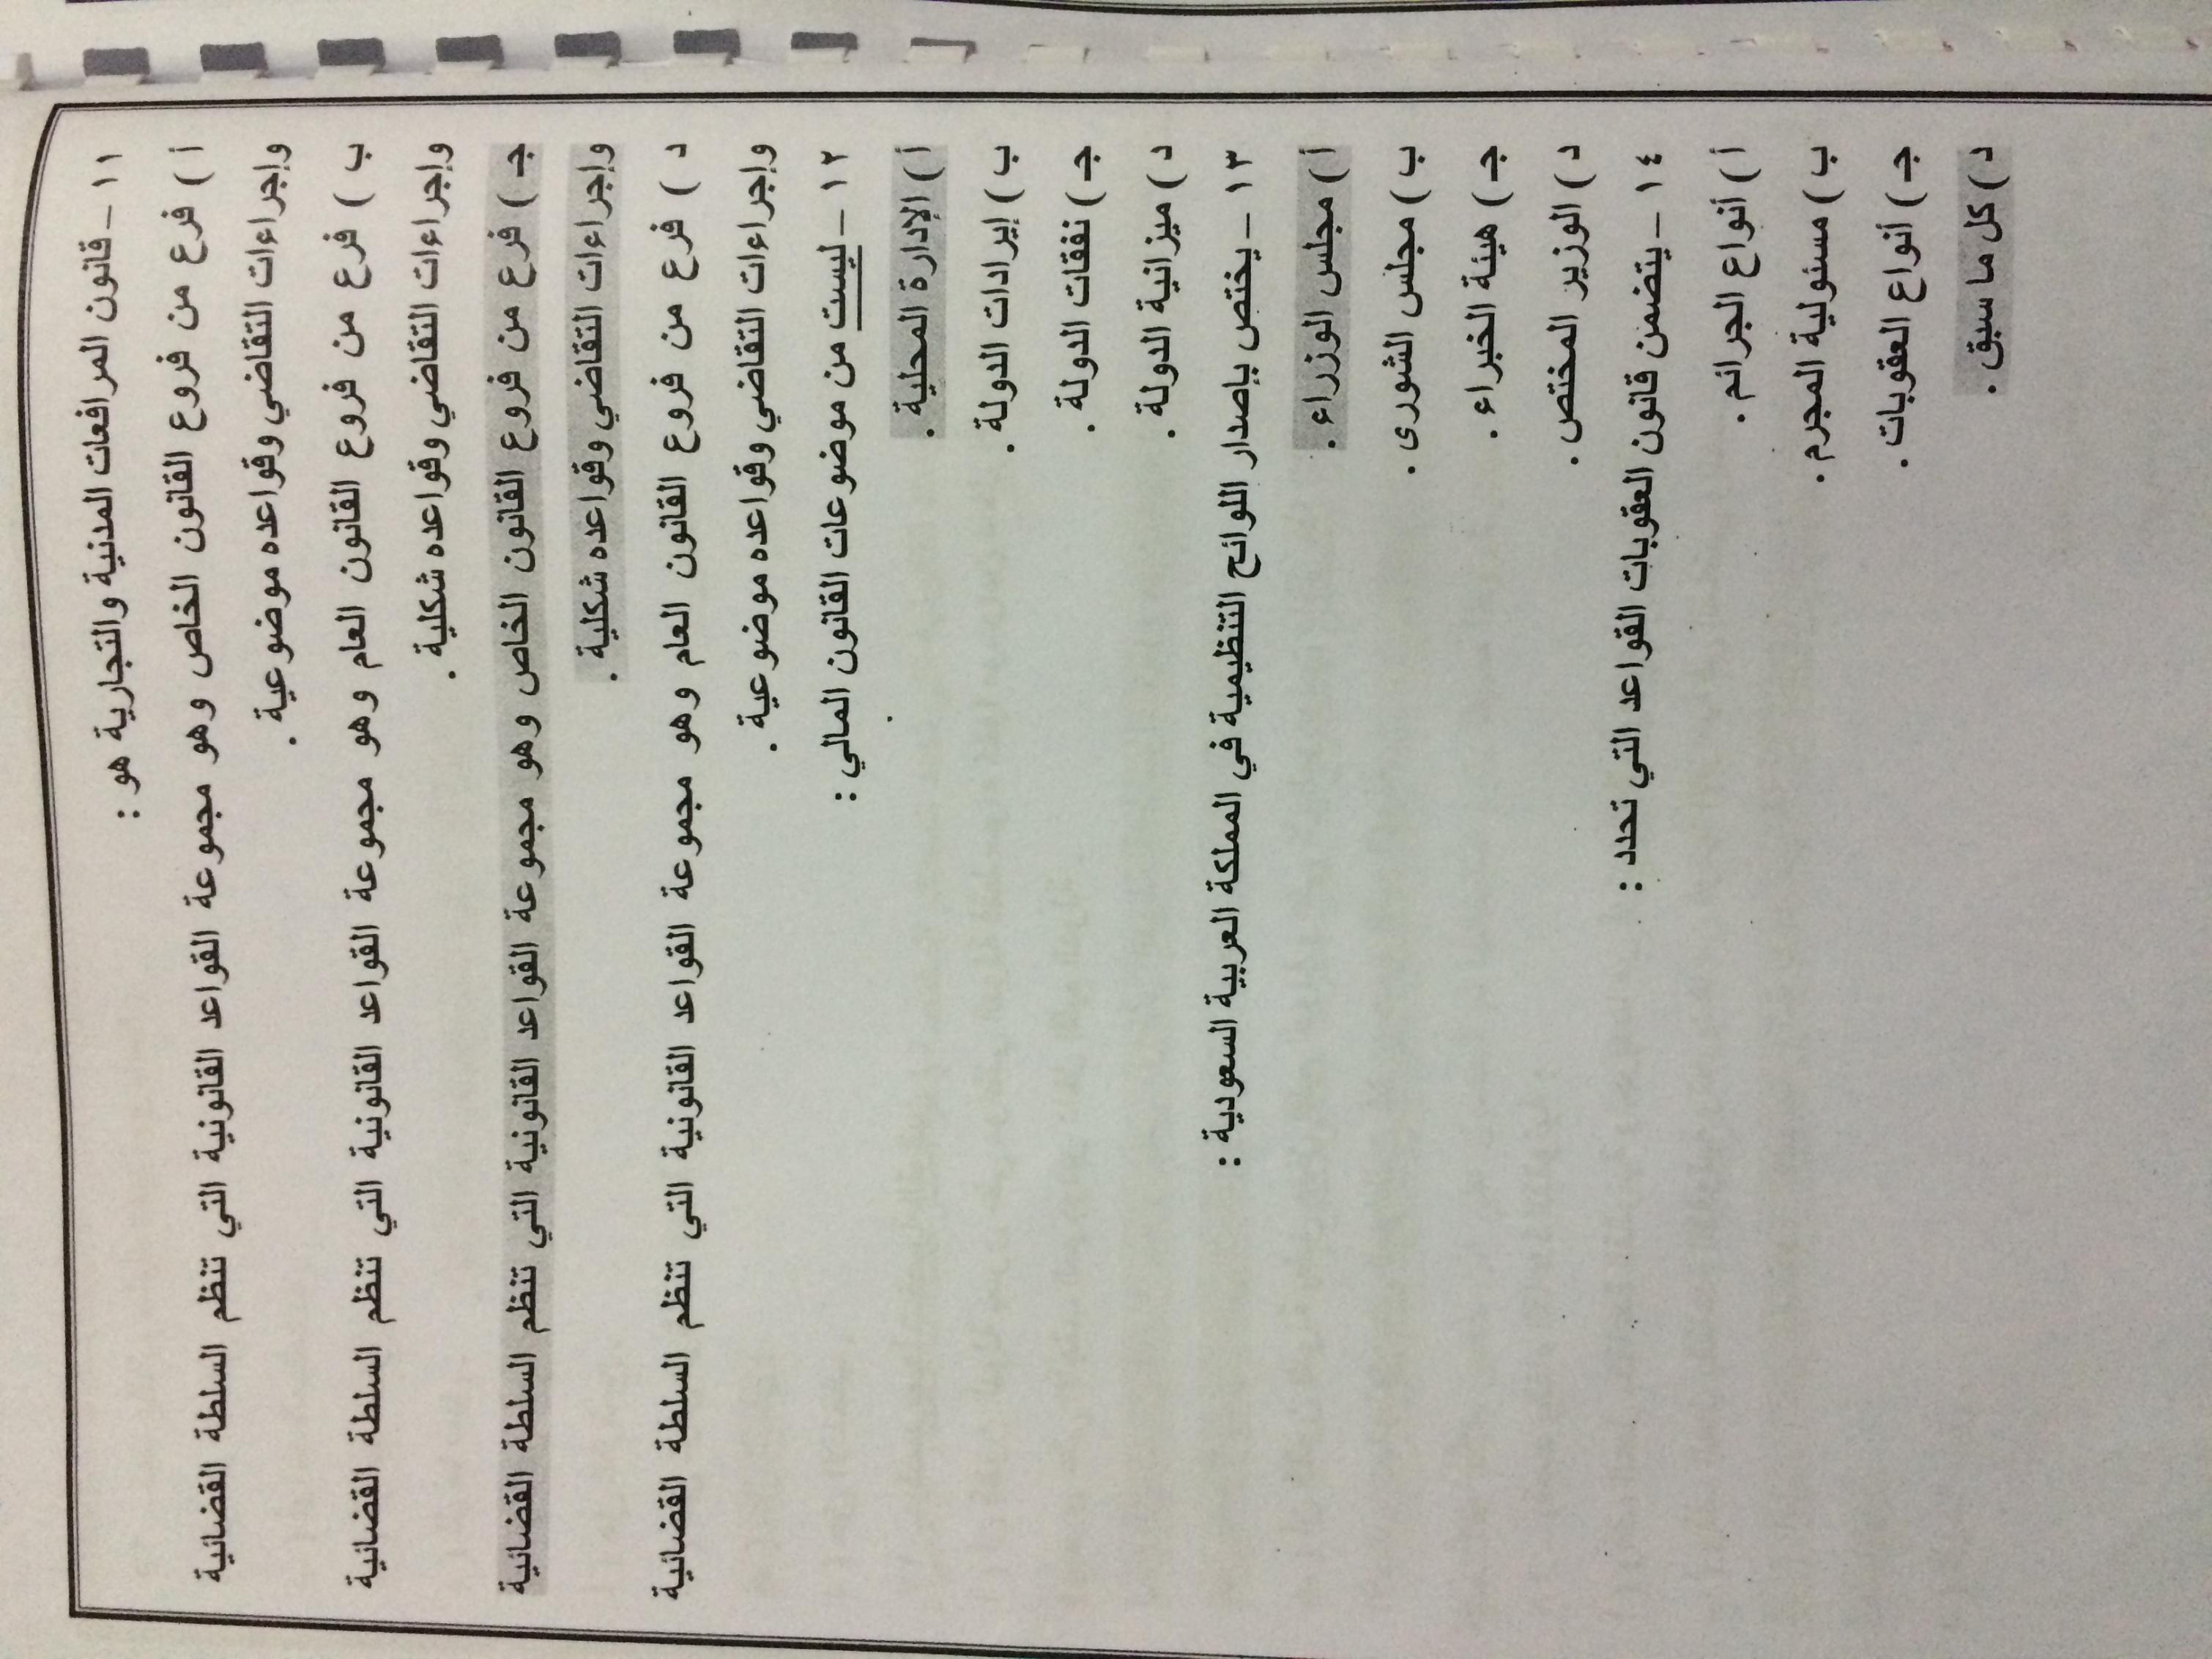 ١١ – قانون المرافعات المدنية والتجارية هو :
أ ) فرع من فروع القانون الخاص وهو مجموعة القواعد القانونية التي تنظم السلطة القضائية
وإجراءات التقاضي وقواعده موضوعية .
ب ) فرع من فروع القانون العام وهو مجموعة القواعد القانونية التي تنظم السلطة القضائية
وإجراءات التقاضي وقواعده شكلية .
جـ ) فرع من فروع القانون الخاص وهو مجموعة القواعد القانونية التي تنظم السلطة القضائية
وإجراءات التقاضي وقواعده شكلية .
د ) فرع من فروع القانون العام وهو مجموعة القواعد القانونية التي تنظم السلطة القضائية
وإجراءات التقاضي وقواعده موضوعية .
١٢ – ليست من موضوعات القانون المالي :
أ ) الإدارة المحلية .
ب ) إيرادات الدولة .
جـ ) نفقات الدولة .
د ) ميزانية الدولة .
١٣ – يختص بإصدار اللوائح التنظيمية في المملكة العربية السعودية :
أ ) مجلس الوزراء .
ب ) مجلس الشورى .
جـ ) هيئة الخبراء .
د ) الوزير المختص .
١٤ – يتضمن قانون العقوبات القواعد التي تحدد :
أ ) أنواع الجرائم .
ب ) مسئولية المجرم .
جـ ) أنواع العقوبات .
د ) كل ما سبق .